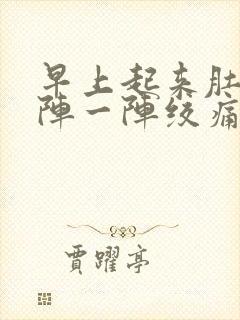 早上起来肚
陣一陣绞痛
賈躍亭